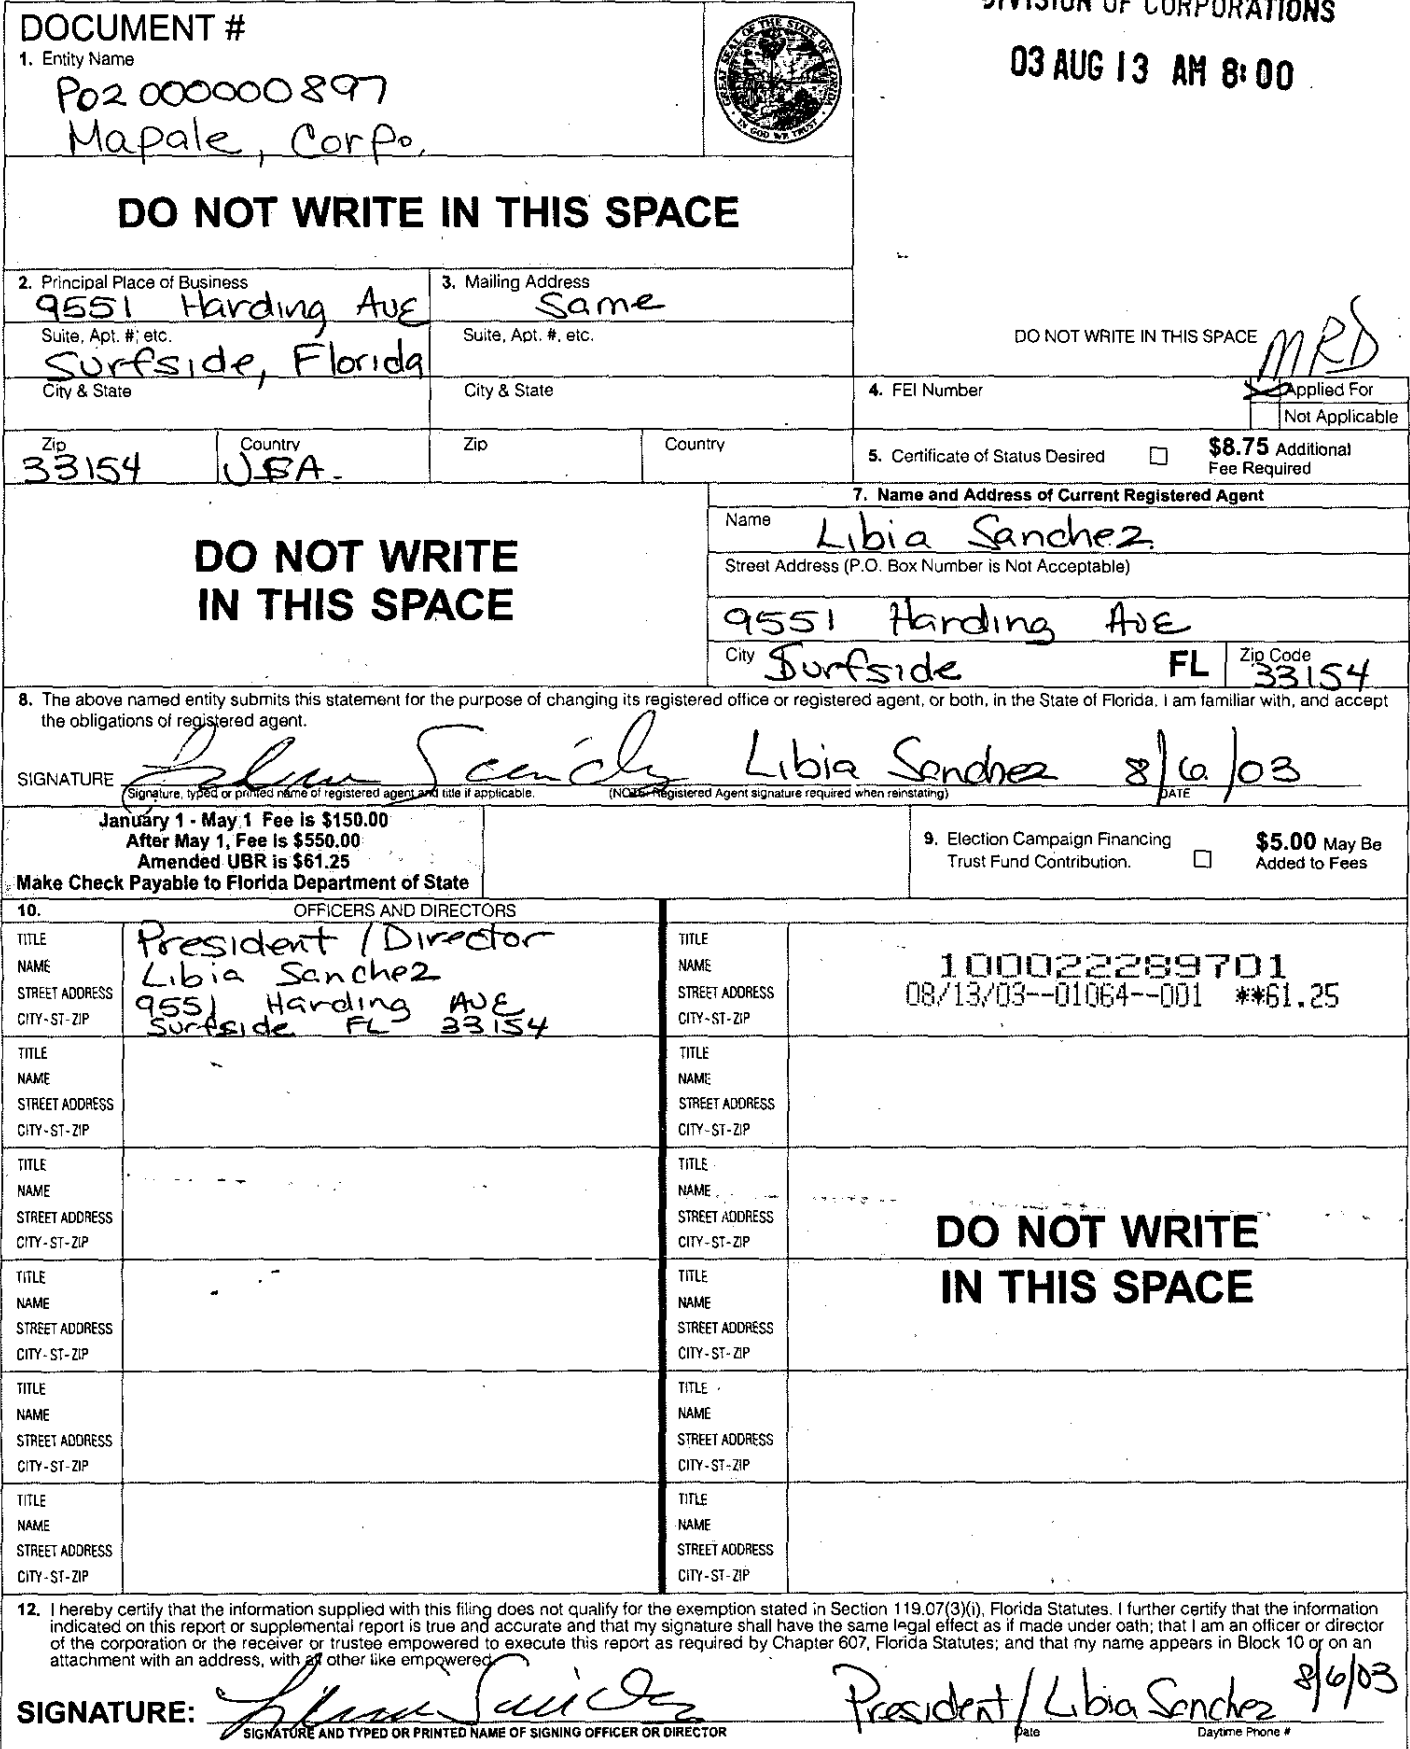 DIVISION OF CORPORATIONS
03 AUG 13 AM 8:00
DOCUMENT #
1. Entity Name
P02000000897
Mapale, Corpo.
GREAT SEAL OF THE STATE OF FLORIDA
IN GOD WE TRUST
DO NOT WRITE IN THIS SPACE
2. Principal Place of Business
9551 Harding AVE
Suite, Apt. #, etc.
Surfside, Florida
City & State
Zip
33154
Country
USA.
3. Mailing Address
Same
Suite, Apt. #, etc.
City & State
Zip
Country
DO NOT WRITE IN THIS SPACE
MRD
4. FEI Number
Applied For
Not Applicable
5. Certificate of Status Desired
$8.75 Additional
Fee Required
DO NOT WRITE
IN THIS SPACE
7. Name and Address of Current Registered Agent
Name
Libia Sanchez
Street Address (P.O. Box Number is Not Acceptable)
9551 Harding AVE
City Surfside FL
Zip Code
33154
8. The above named entity submits this statement for the purpose of changing its registered office or registered agent, or both, in the State of Florida. I am familiar with, and accept
the obligations of registered agent.
SIGNATURE Libia Sanchez 8/6/03
Signature, typed or printed name of registered agent and title if applicable.
(NOTE: Registered Agent signature required when reinstating)
DATE
January 1 - May 1 Fee is $150.00
After May 1, Fee is $550.00
Amended UBR is $61.25
Make Check Payable to Florida Department of State
9. Election Campaign Financing
Trust Fund Contribution.
$5.00 May Be
Added to Fees
10. OFFICERS AND DIRECTORS
TITLE President / Director
NAME Libia Sanchez
STREET ADDRESS 9551 Harding AVE
CITY-ST-ZIP Surfside FL 33154
TITLE
NAME
STREET ADDRESS
CITY-ST-ZIP
TITLE
NAME
STREET ADDRESS
CITY-ST-ZIP
TITLE
NAME
STREET ADDRESS
CITY-ST-ZIP
TITLE
NAME
STREET ADDRESS
CITY-ST-ZIP
TITLE
NAME
STREET ADDRESS
CITY-ST-ZIP
TITLE
NAME
STREET ADDRESS
CITY-ST-ZIP
100022289701
08/13/03--01064--001 **61.25
TITLE
NAME
STREET ADDRESS
CITY-ST-ZIP
TITLE
NAME
STREET ADDRESS
CITY-ST-ZIP
TITLE
NAME
STREET ADDRESS
CITY-ST-ZIP
DO NOT WRITE
IN THIS SPACE
TITLE
NAME
STREET ADDRESS
CITY-ST-ZIP
TITLE
NAME
STREET ADDRESS
CITY-ST-ZIP
12. I hereby certify that the information supplied with this filing does not qualify for the exemption stated in Section 119.07(3)(i), Florida Statutes. I further certify that the information
indicated on this report or supplemental report is true and accurate and that my signature shall have the same legal effect as if made under oath; that I am an officer or director
of the corporation or the receiver or trustee empowered to execute this report as required by Chapter 607, Florida Statutes; and that my name appears in Block 10 or on an
attachment with an address, with all other like empowered.
SIGNATURE: President / Libia Sanchez 8/6/03
SIGNATURE AND TYPED OR PRINTED NAME OF SIGNING OFFICER OR DIRECTOR
Date
Daytime Phone #